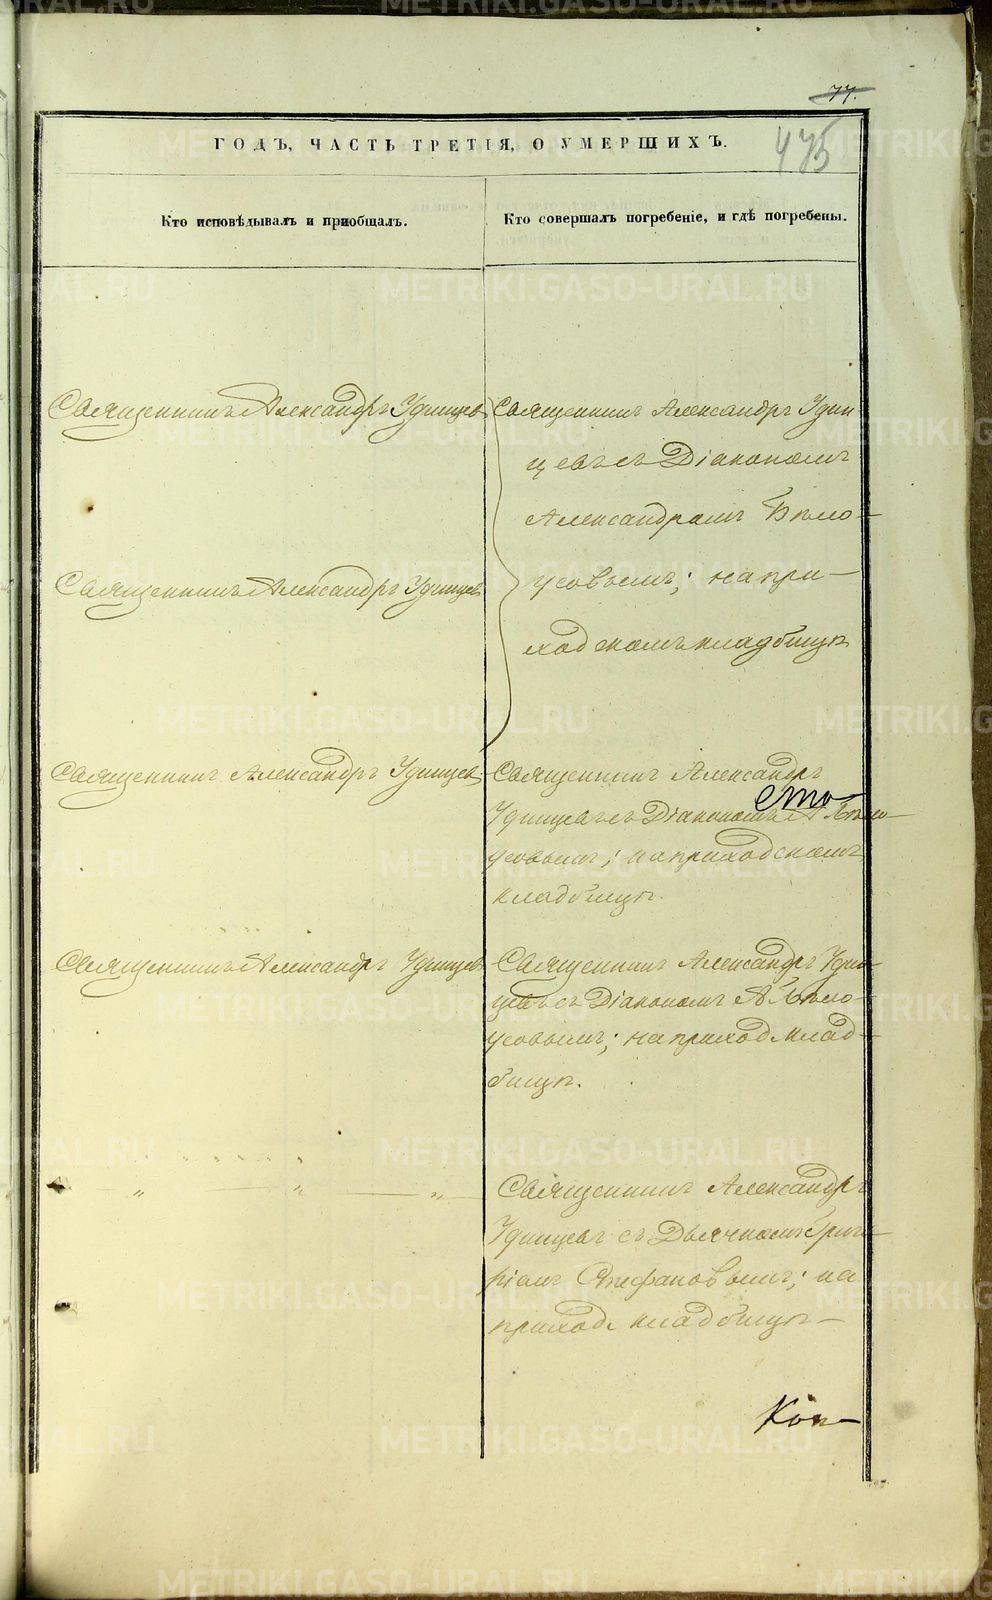 77.
475
ГОДЪ, ЧАСТЬ ТРЕТІЯ, О УМЕРШИХЪ.
Кто исповѣдывалъ и пріобщалъ.
Кто совершалъ погребеніе, и гдѣ погребены.
Священникъ Александръ Удинцев
Священникъ Александръ Удин
цевъ съ Діакономъ
Александромъ Бѣло-
усовымъ; на при-
ходскомъ кладбищѣ
Священникъ Александръ Удинцев
Священникъ Александръ Удинцев
Священникъ Александръ
Удинцевъ съ Діакономъ А Бѣло-
усовымъ; на приходскомъ
кладбищѣ.
сто
Священникъ Александръ Удинцев
Священникъ Александръ Удин-
цевъ съ Діакономъ А Бѣло-
усовымъ; на приход клад-
бищѣ.
„ „ „
Священникъ Александръ
Удинцевъ съ Дьячкомъ Григо-
ріемъ Стефановымъ; на
приходс кладбищѣ
Кон-
METRIKI.GASO-URAL.RU